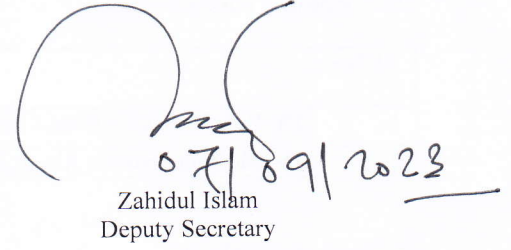 07/09/2023
Zahidul Islam
Deputy Secretary